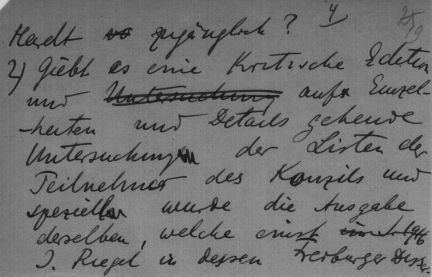 4 25/9
Hardt zugänglich?
2) Giebt es eine Kritische Edition
und Untersuchung aufs Einzel-
heiten und Details gehende
Untersuchungen der Listen der
Teilnehmer des Konzils und
speziell wurde die Ausgabe
derselben, welche einst 1916
J. Riegel in dessen Freiburger Diss.